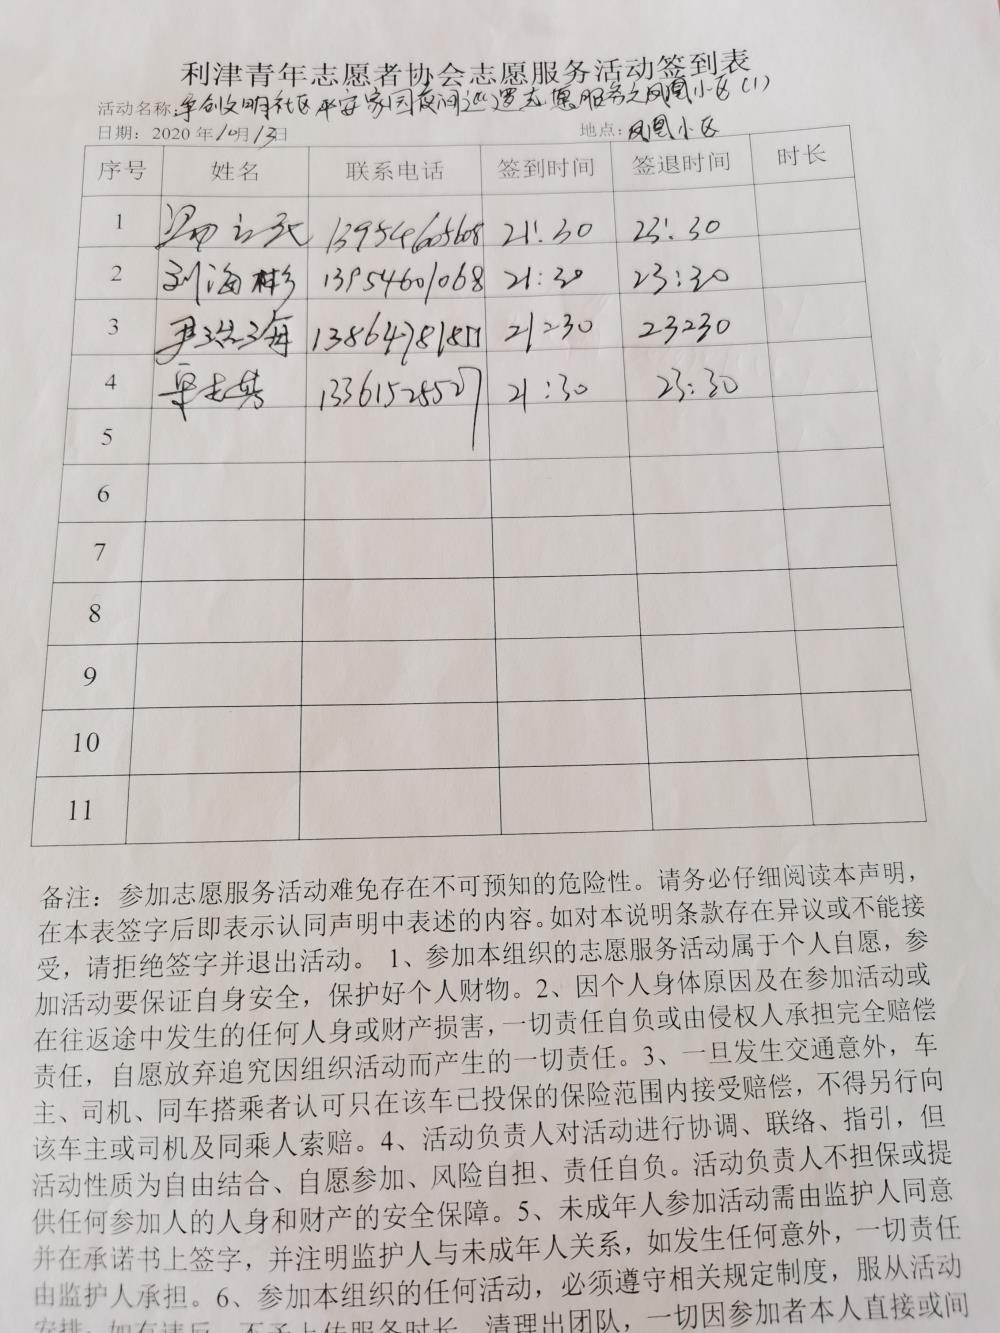 利津青年志愿者协会志愿服务活动签到表
活动名称:争创文明社区平安家园夜间巡逻志愿服务之凤凰小区(1)
日期：2020年10月13日 地点：凤凰小区
序号 姓名 联系电话 签到时间 签退时间 时长
1 13954605608 21:30 23:30
2 刘海彬 13954601068 21:30 23:30
3 尹洪海 21:30 23:30
4 13361528527 21:30 23:30
5
6
7
8
9
10
11
备注：参加志愿服务活动难免存在不可预知的危险性。请务必仔细阅读本声明，
在本表签字后即表示认同声明中表述的内容。如对本说明条款存在异议或不能接
受，请拒绝签字并退出活动。 1、参加本组织的志愿服务活动属于个人自愿，参
加活动要保证自身安全，保护好个人财物。2、因个人身体原因及在参加活动或
在往返途中发生的任何人身或财产损害，一切责任自负或由侵权人承担完全赔偿
责任，自愿放弃追究因组织活动而产生的一切责任。3、一旦发生交通意外，车
主、司机、同车搭乘者认可只在该车已投保的保险范围内接受赔偿，不得另行向
该车主或司机及同乘人索赔。4、活动负责人对活动进行协调、联络、指引，但
活动性质为自由结合、自愿参加、风险自担、责任自负。活动负责人不担保或提
供任何参加人的人身和财产的安全保障。5、未成年人参加活动需由监护人同意
并在承诺书上签字，并注明监护人与未成年人关系，如发生任何意外，一切责任
由监护人承担。6、参加本组织的任何活动，必须遵守相关规定制度，服从活动
安排，如有违反，不予上传服务时长，清理出团队，一切因参加者本人直接或间